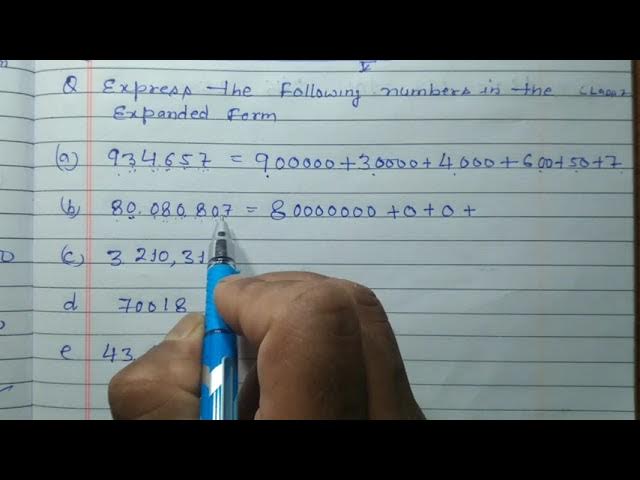 V
Q Express the Following numbers in the
Expanded Form
(a) 934,657 = 900000+30000+4000+600+50+7
(b) 80,080,807 = 80000000 +0+0+
(c) 3 210,31
d 70018
e 43